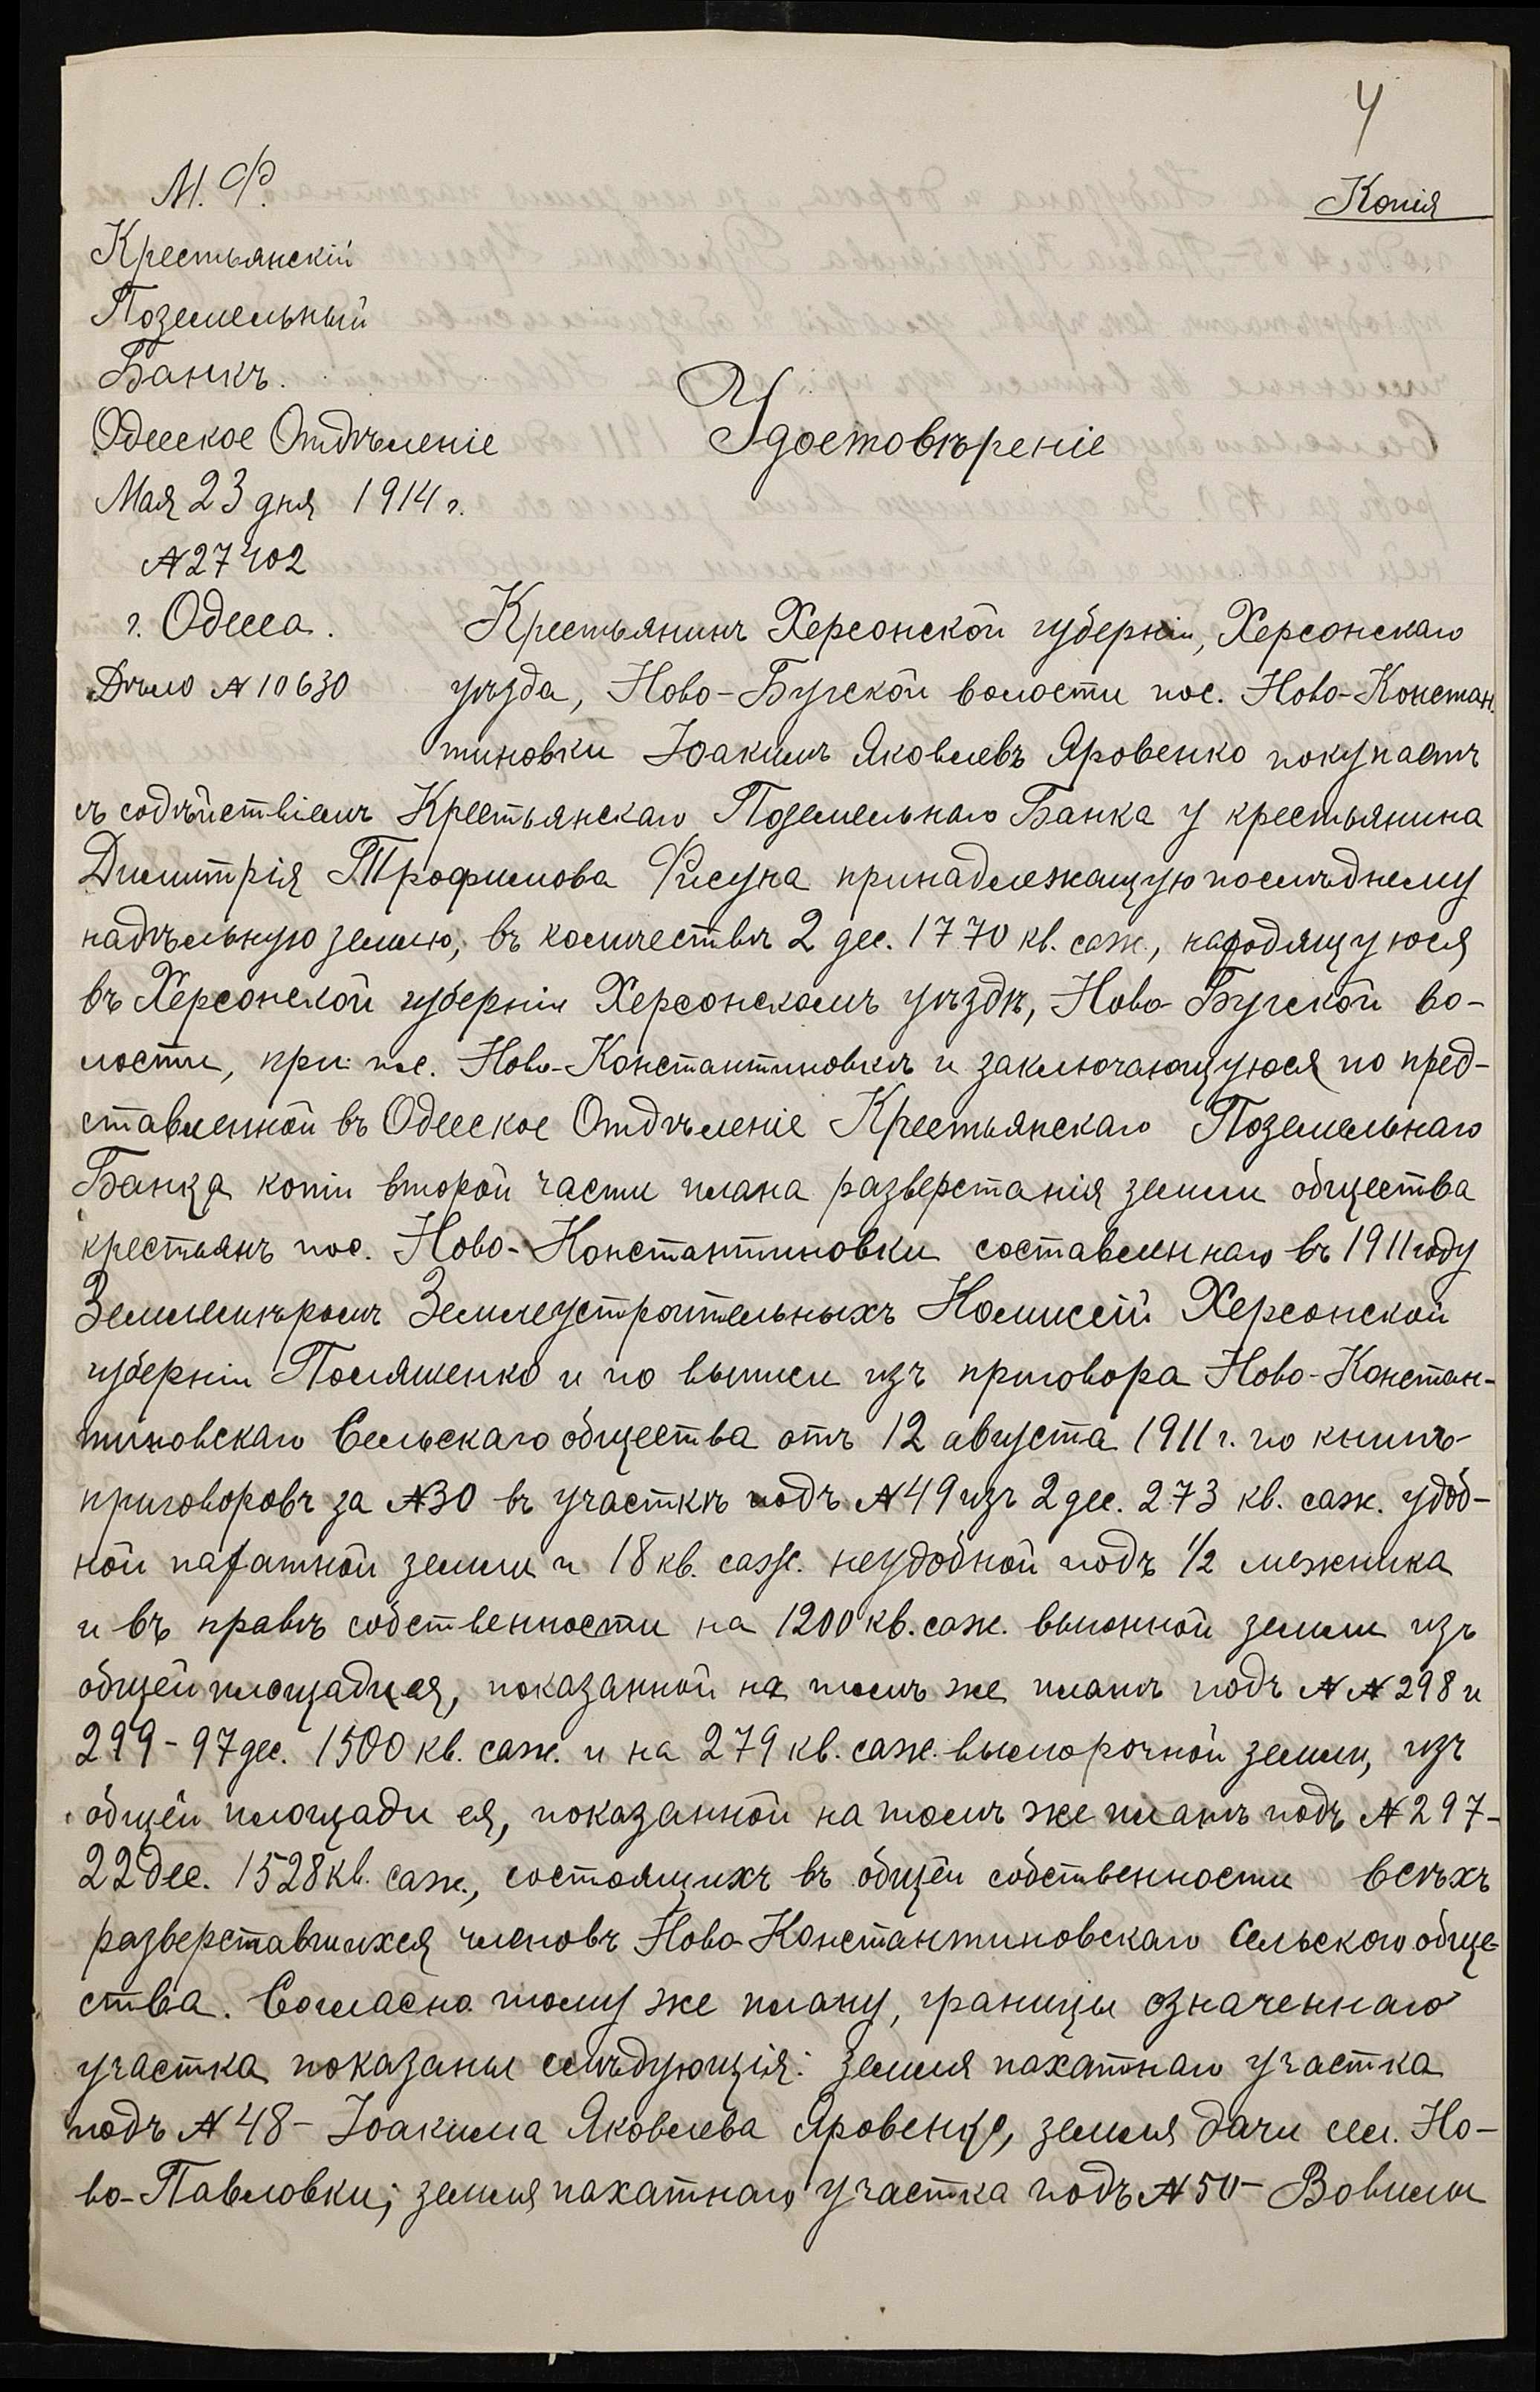 4
М. Ф.
Копія
Крестьянскій
Поземельный
Банкъ.
Одесское Отдѣленіе
Удостовѣреніе
Мая 23 дня 1914 г.
№ 27402
г. Одесса.
Дѣло № 10630
Крестьянинъ Херсонской губерніи, Херсонскаго
уѣзда, Ново-Бугской волости пос. Ново-Констан-
тиновки Іоакимъ Яковлевъ Яровенко покупаетъ
съ содѣйствіемъ Крестьянскаго Поземельнаго Банка у крестьянина
Димитрія Трофимова Фисуна принадлежащую послѣднему
надѣльную землю, въ количествѣ 2 дес. 1770 кв. саж., находящуюся
въ Херсонской губерніи Херсонскомъ уѣздѣ, Ново-Бугской во-
лости, при пос. Ново-Константиновкѣ и заключающуюся по пред-
ставленной въ Одесское Отдѣленіе Крестьянскаго Поземельнаго
Банка копіи второй части плана разверстанія земли общества
крестьянъ пос. Ново-Константиновки составленнаго въ 1911 году
Землемѣромъ Землеустроительныхъ Комиссій Херсонской
губерніи Поляшенко и по выписи изъ приговора Ново-Констан-
тиновскаго Сельскаго общества отъ 12 августа 1911 г. по книгѣ
приговоровъ за № 30 въ участкѣ подъ № 49 изъ 2 дес. 273 кв. саж. удоб-
ной пахатной земли и 18 кв. саж. неудобной подъ 1/2 межника
и въ правѣ собственности на 1200 кв. саж. выгонной земли изъ
общей площади ея, показанной на томъ же планѣ подъ № № 298 и
299 - 97 дес. 1500 кв. саж. и на 279 кв. саж. выморочной земли, изъ
общей площади ея, показанной на томъ же планѣ подъ № 297 -
22 дес. 1528 кв. саж., состоящихъ въ общей собственности всѣхъ
разверставшихся членовъ Ново-Константиновскаго сельскаго обще-
ства. Согласно тому же плану, границы означеннаго
участка показаны слѣдующія: земля пахатнаго участка
подъ № 48 - Іоакима Яковлева Яровенко, земля дачи сел. Но-
во-Павловки; земля пахатнаго участка подъ № 50 - Вовилы